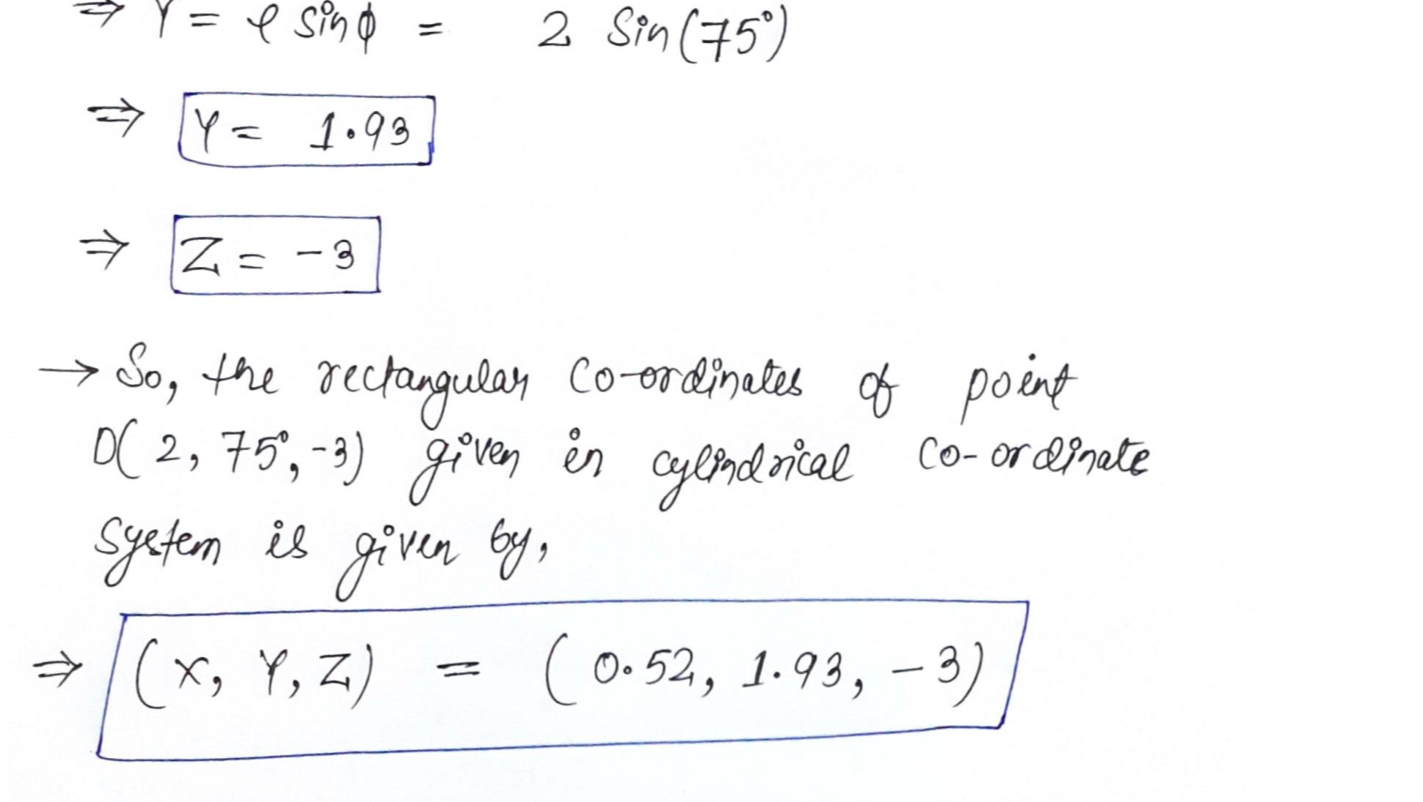 ⇒ Y = ρ sinφ = 2 Sin(75°)
⇒ Y = 1.93
⇒ Z = -3
→ So, the rectangular co-ordinates of point
D(2, 75°, -3) given in cylindrical co-ordinate
system is given by,
⇒ (X, Y, Z) = (0.52, 1.93, -3)